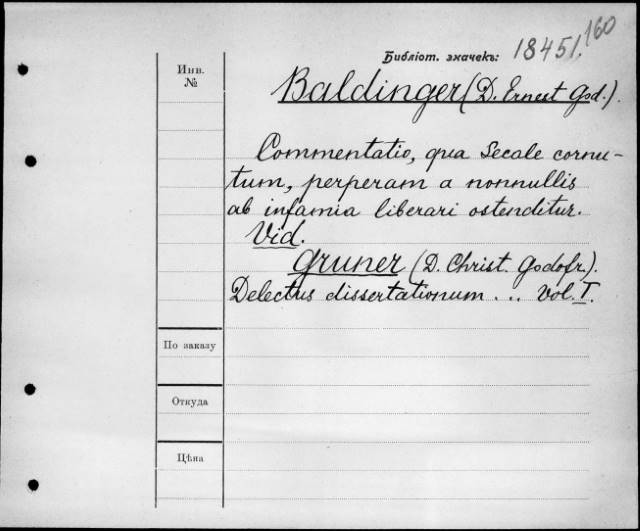 Библіот. значекъ: 18451. 160
Инв.
№
Baldinger (D. Ernest God.).
Commentatio, qua Secale cornu-
tum, perperam a nonnullis
ab infamia liberari ostenditur.
Vid.
Gruner (D. Christ. Godofr.).
Delectus dissertationum ... Vol. I.
По заказу
Откуда
Цѣна